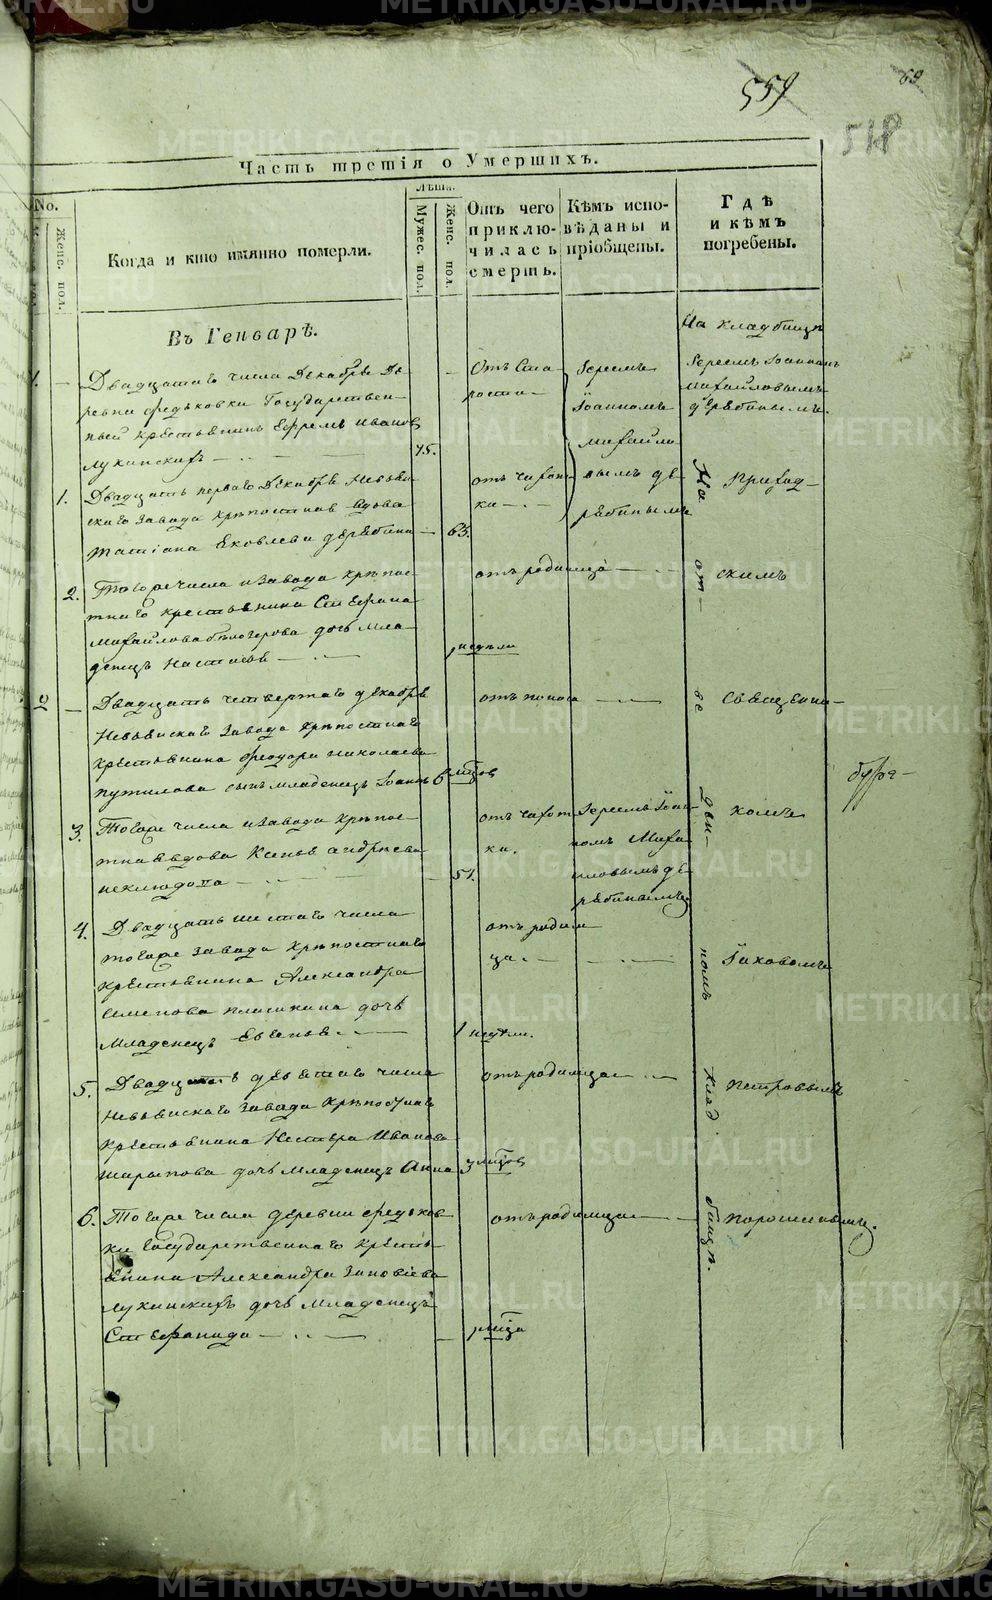 559
69
518
Часть третія о Умершихъ.
No.
Женс. пол.
Когда и кто имянно померли.
Лѣта.
Мужес. пол.
Женс. пол.
Отъ чего приключилась смерть.
Кѣмъ исповѣданы и пріобщены.
Гдѣ и кѣмъ погребены.
Въ Генварѣ.
На кладбищѣ
1. — Двадцатаго числа Декабря Де-
ревни Федьковки Государствен-
ный крестьянинъ Ефремъ Ивановъ
Лукинскихъ — 75.
Отъ Ста-
рости —
Іереемъ
Іоанномъ
Михайло-
вымъ Де-
рябинымъ
Іереемъ Іоанномъ
Михайловымъ
Дерябинымъ.
1. Двадцать перваго Декабря Невьян-
скаго завода крѣпостная вдова
Татіана Яковлева Дерябина — 63.
отъ чахот-
ки —
2. Тогоже числа и завода крѣпос-
тнаго крестьянина Стефана
Михайлова Бѣлоусрова дочь мла-
денецъ Настасья — недѣли
отъ родимца —
2 — Двадцать четвертаго декабря
Невьянскаго завода крѣпостнаго
крестьянина Феодора Николаева
Путилова сынъ младенецъ Іоаннъ 6 мцов
отъ поноса —
3. Тогоже числа и завода крѣпос-
тная вдова Ксенья Андрѣева
Неклюдова — 51.
отъ чахот-
ки.
Іереемъ Іоан-
номъ Миха-
иловымъ Де-
рябинымъ
4. Двадцать шестаго числа
тогоже завода крѣпостнаго
крестьянина Александра
Семенова Плишкина дочь
младенецъ Евгенья — 1 недѣли.
отъ родим-
ца —
5. Двадцать девятаго числа
Невьянскаго завода крѣпостнаго
крестьянина Нестера Иванова
Шарыпова дочь младенецъ Анна 3 мцов
отъ родимца —
6. Тогоже числа деревни Федьков-
ки Государственнаго кресть-
янина Александра Зиновіева
Лукинскихъ дочь младенецъ
Стефанида — мцца
отъ родимца —
На от-
ве-
ден-
номъ
клад-
бищѣ.
Приход-
скимъ
Священни-
комъ
Іаковомъ
Петровымъ
Порошинымъ.